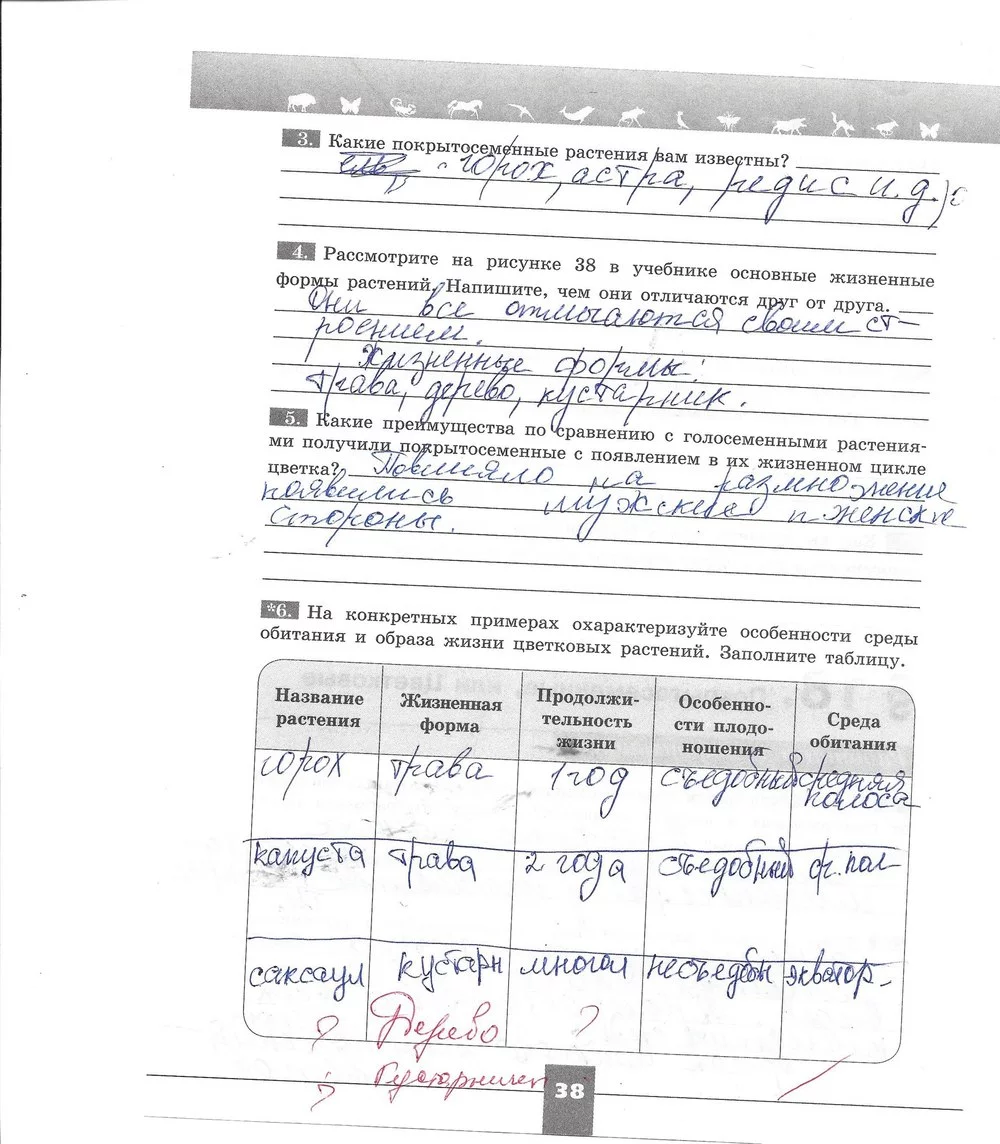 3. Какие покрытосеменные растения вам известны?
горох, астра, редис и.д.
4. Рассмотрите на рисунке 38 в учебнике основные жизненные
формы растений. Напишите, чем они отличаются друг от друга.
Они все отличаются своим ст-
роением.
Жизненные формы:
трава, дерево, кустарник.
5. Какие преимущества по сравнению с голосеменными растения-
ми получили покрытосеменные с появлением в их жизненном цикле
цветка? Повлияло на размножение
появились мужские и женские
стороны.
*6. На конкретных примерах охарактеризуйте особенности среды
обитания и образа жизни цветковых растений. Заполните таблицу.
Название растения Жизненная форма Продолжи-тельность жизни Особенно-сти плодо-ношения Среда обитания
горох трава 1 год съедобный средняя полоса
капуста трава 2 года съедобный ср. пол-
саксаул кустарн многол несъедобн экватор-
? Дерево ?
? Кустарничек
38